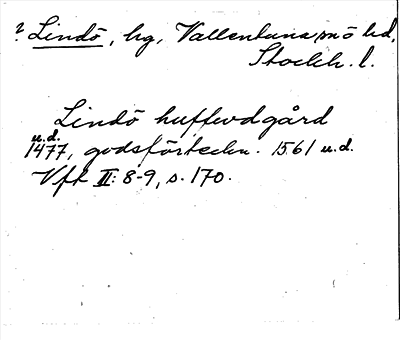 ? Lindö, hg, Vallentuna sn ö hd,
Stockh. l.
Lindö huffwdgård
u.d.
1477, godsförteckn. 1561 u.d.
Vfk II: 8-9, s. 170.